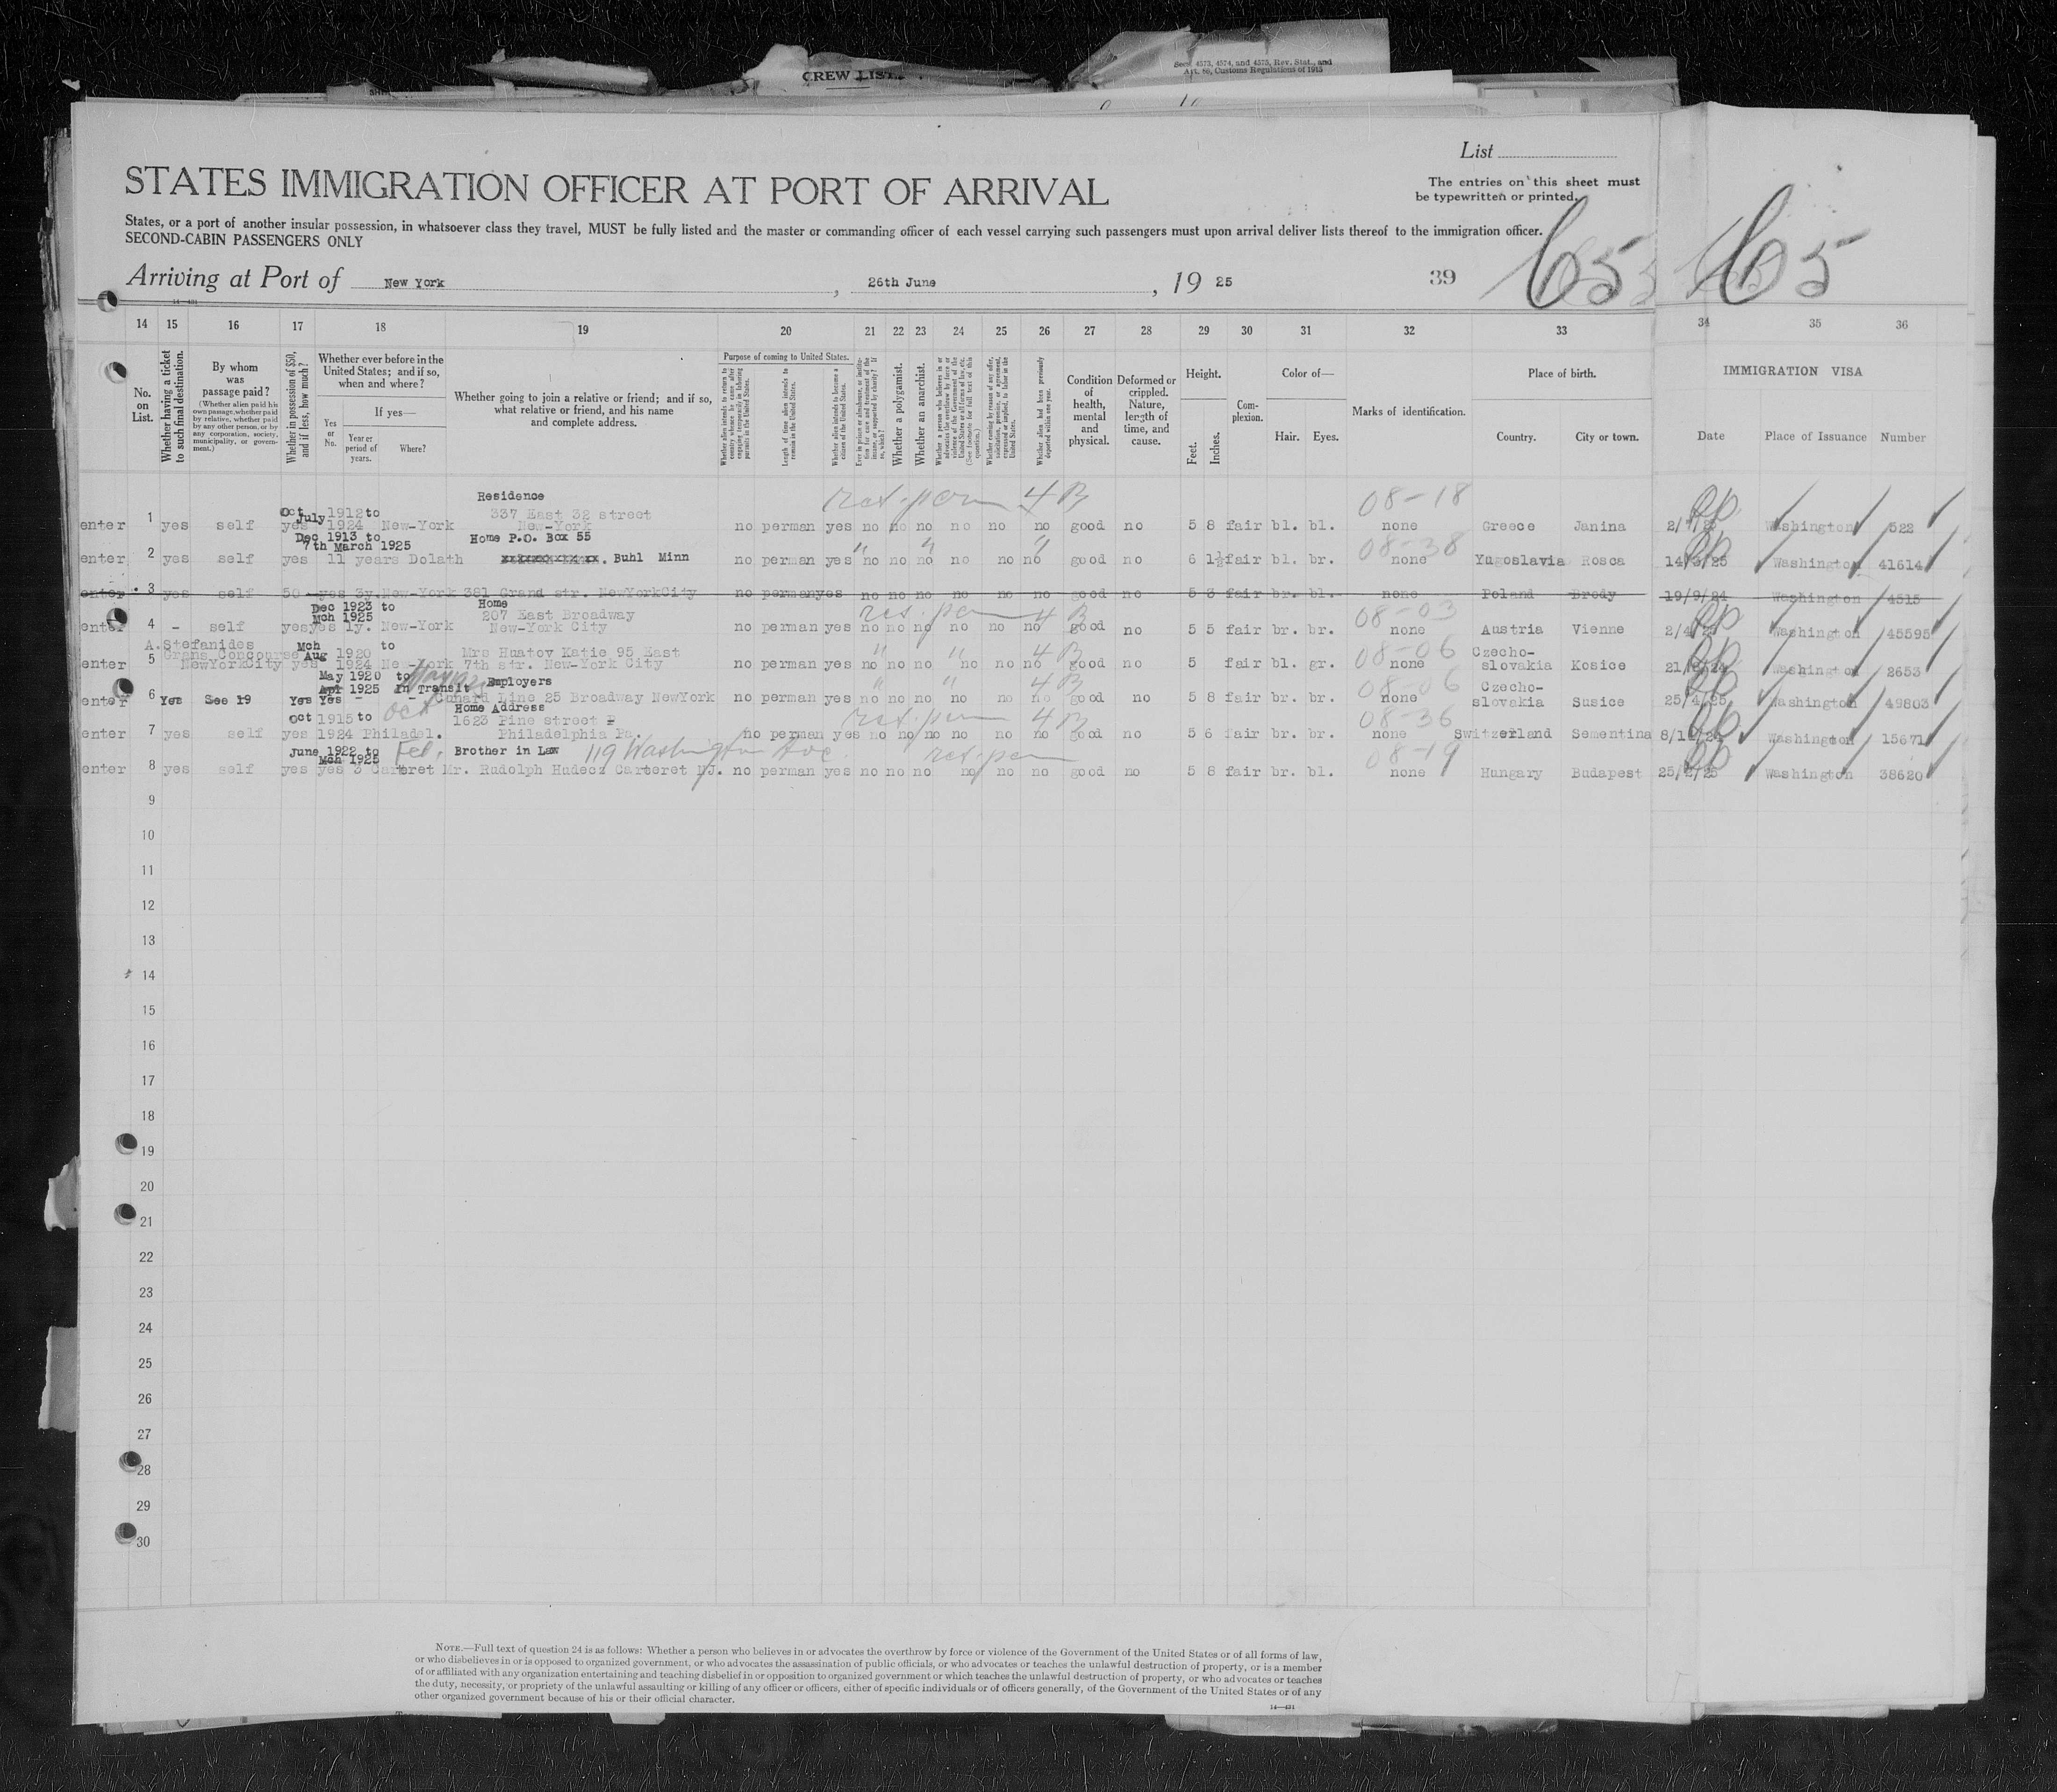 CREW LIST
Secs. 4573, 4574, and 4575, Rev. Stat., and
Art. 86, Customs Regulations of 1915
List
STATES IMMIGRATION OFFICER AT PORT OF ARRIVAL
The entries on this sheet must
be typewritten or printed.
States, or a port of another insular possession, in whatsoever class they travel, MUST be fully listed and the master or commanding officer of each vessel carrying such passengers must upon arrival deliver lists thereof to the immigration officer.
SECOND-CABIN PASSENGERS ONLY
65 65
Arriving at Port of New York, 26th June, 19 25 39
14 15 16 17 18 19 20 21 22 23 24 25 26 27 28 29 30 31 32 33 34 35 36
No. on List.
Whether having a ticket to such final destination.
By whom was passage paid?
(Whether alien paid his own passage, whether paid by relative, whether paid by any other person, or by any corporation, society, municipality, or government.)
Whether in possession of $50, and if less, how much?
Whether ever before in the United States; and if so, when and where?
Yes or No.
If yes—
Year or period of years.
Where?
Whether going to join a relative or friend; and if so, what relative or friend, and his name and complete address.
Purpose of coming to United States.
Whether alien intends to return to country whence he came after engaging temporarily in laboring pursuits in the United States.
Length of time alien intends to remain in the United States.
Whether alien intends to become a citizen of the United States.
Whether a polygamist.
Whether an anarchist.
Whether alien had been previously deported within one year.
Condition of health, mental and physical.
Deformed or crippled. Nature, length of time, and cause.
Height.
Feet.
Inches.
Complexion.
Color of—
Hair.
Eyes.
Marks of identification.
Place of birth.
Country.
City or town.
IMMIGRATION VISA
Date
Place of Issuance
Number
Residence 4 B 08-18
Oct 1912 to 337 East 32 street
July
enter 1 yes self yes 1924 New-York New-York no perman yes no no no no no no good no 5 8 fair bl. bl. none Greece Janina Washington 522
Dec 1913 to Home P.O. Box 55
7th March 1925 08-38
enter 2 yes self yes 11 years Dolath Buhl Minn no perman yes no no no no no no good no 6 1½ fair bl. br. none Yugoslavia Rosca 14/3/25 Washington 41614
enter 3 yes self 50 yes 3y. New-York 381 Grand str. NewYorkCity no perman yes no no no no no no good no 5 3 fair br. bl. none Poland Brody 19/9/24 Washington 4515
Dec 1923 to Home 4 B 08-03
Mch 1925 207 East Broadway
enter 4 - self yes yes 1y. New-York New-York City no perman yes no no no no no no good no 5 5 fair br. br. none Austria Vienne Washington 45595
A. Stefanides Mch to
Grans Concourse Aug 1920 Mrs Huatov Katie 95 East 4 B 08-06 Czecho-
enter 5 NewYorkCity yes 1924 New-York 7th str. New-York City no perman yes no no no no no no good no 5 fair bl. gr. none slovakia Kosice Washington 2653
May 1920 to
Apr 1925 In Transit Employers 4 B 08-06 Czecho-
enter 6 Yes See 19 Yes Yes - - Cunard Line 25 Broadway NewYork no perman yes no no no no no no good no 5 8 fair br. br. none slovakia Susice 25/4/25 Washington 49803
Home Address
Oct 1915 to Oct 1623 Pine street 4 B 08-36
enter 7 yes self yes 1924 Philadel. Philadelphia Pa. no perman yes no no no no no no good no 5 6 fair br. br. none Switzerland Sementina Washington 15671
June 1922 to Feb. Brother in Law 119 Washington Ave 08-19
Mch 1925
enter 8 yes self yes yes 3 Carteret Mr. Rudolph Hudecz Carteret NJ. no perman yes no no no no no no good no 5 8 fair br. bl. none Hungary Budapest 25/2/25 Washington 38620
9
10
11
12
13
14
15
16
17
18
19
20
21
22
23
24
25
26
27
28
29
30
NOTE.—Full text of question 24 is as follows: Whether a person who believes in or advocates the overthrow by force or violence of the Government of the United States or of all forms of law,
or who disbelieves in or is opposed to organized government, or who advocates the assassination of public officials, or who advocates or teaches the unlawful destruction of property, or is a member
of or affiliated with any organization entertaining and teaching disbelief in or opposition to organized government or which teaches the unlawful destruction of property, or who advocates or teaches
the duty, necessity, or propriety of the unlawful assaulting or killing of any officer or officers, either of specific individuals or of officers generally, of the Government of the United States or of any
other organized government because of his or their official character.
14—431